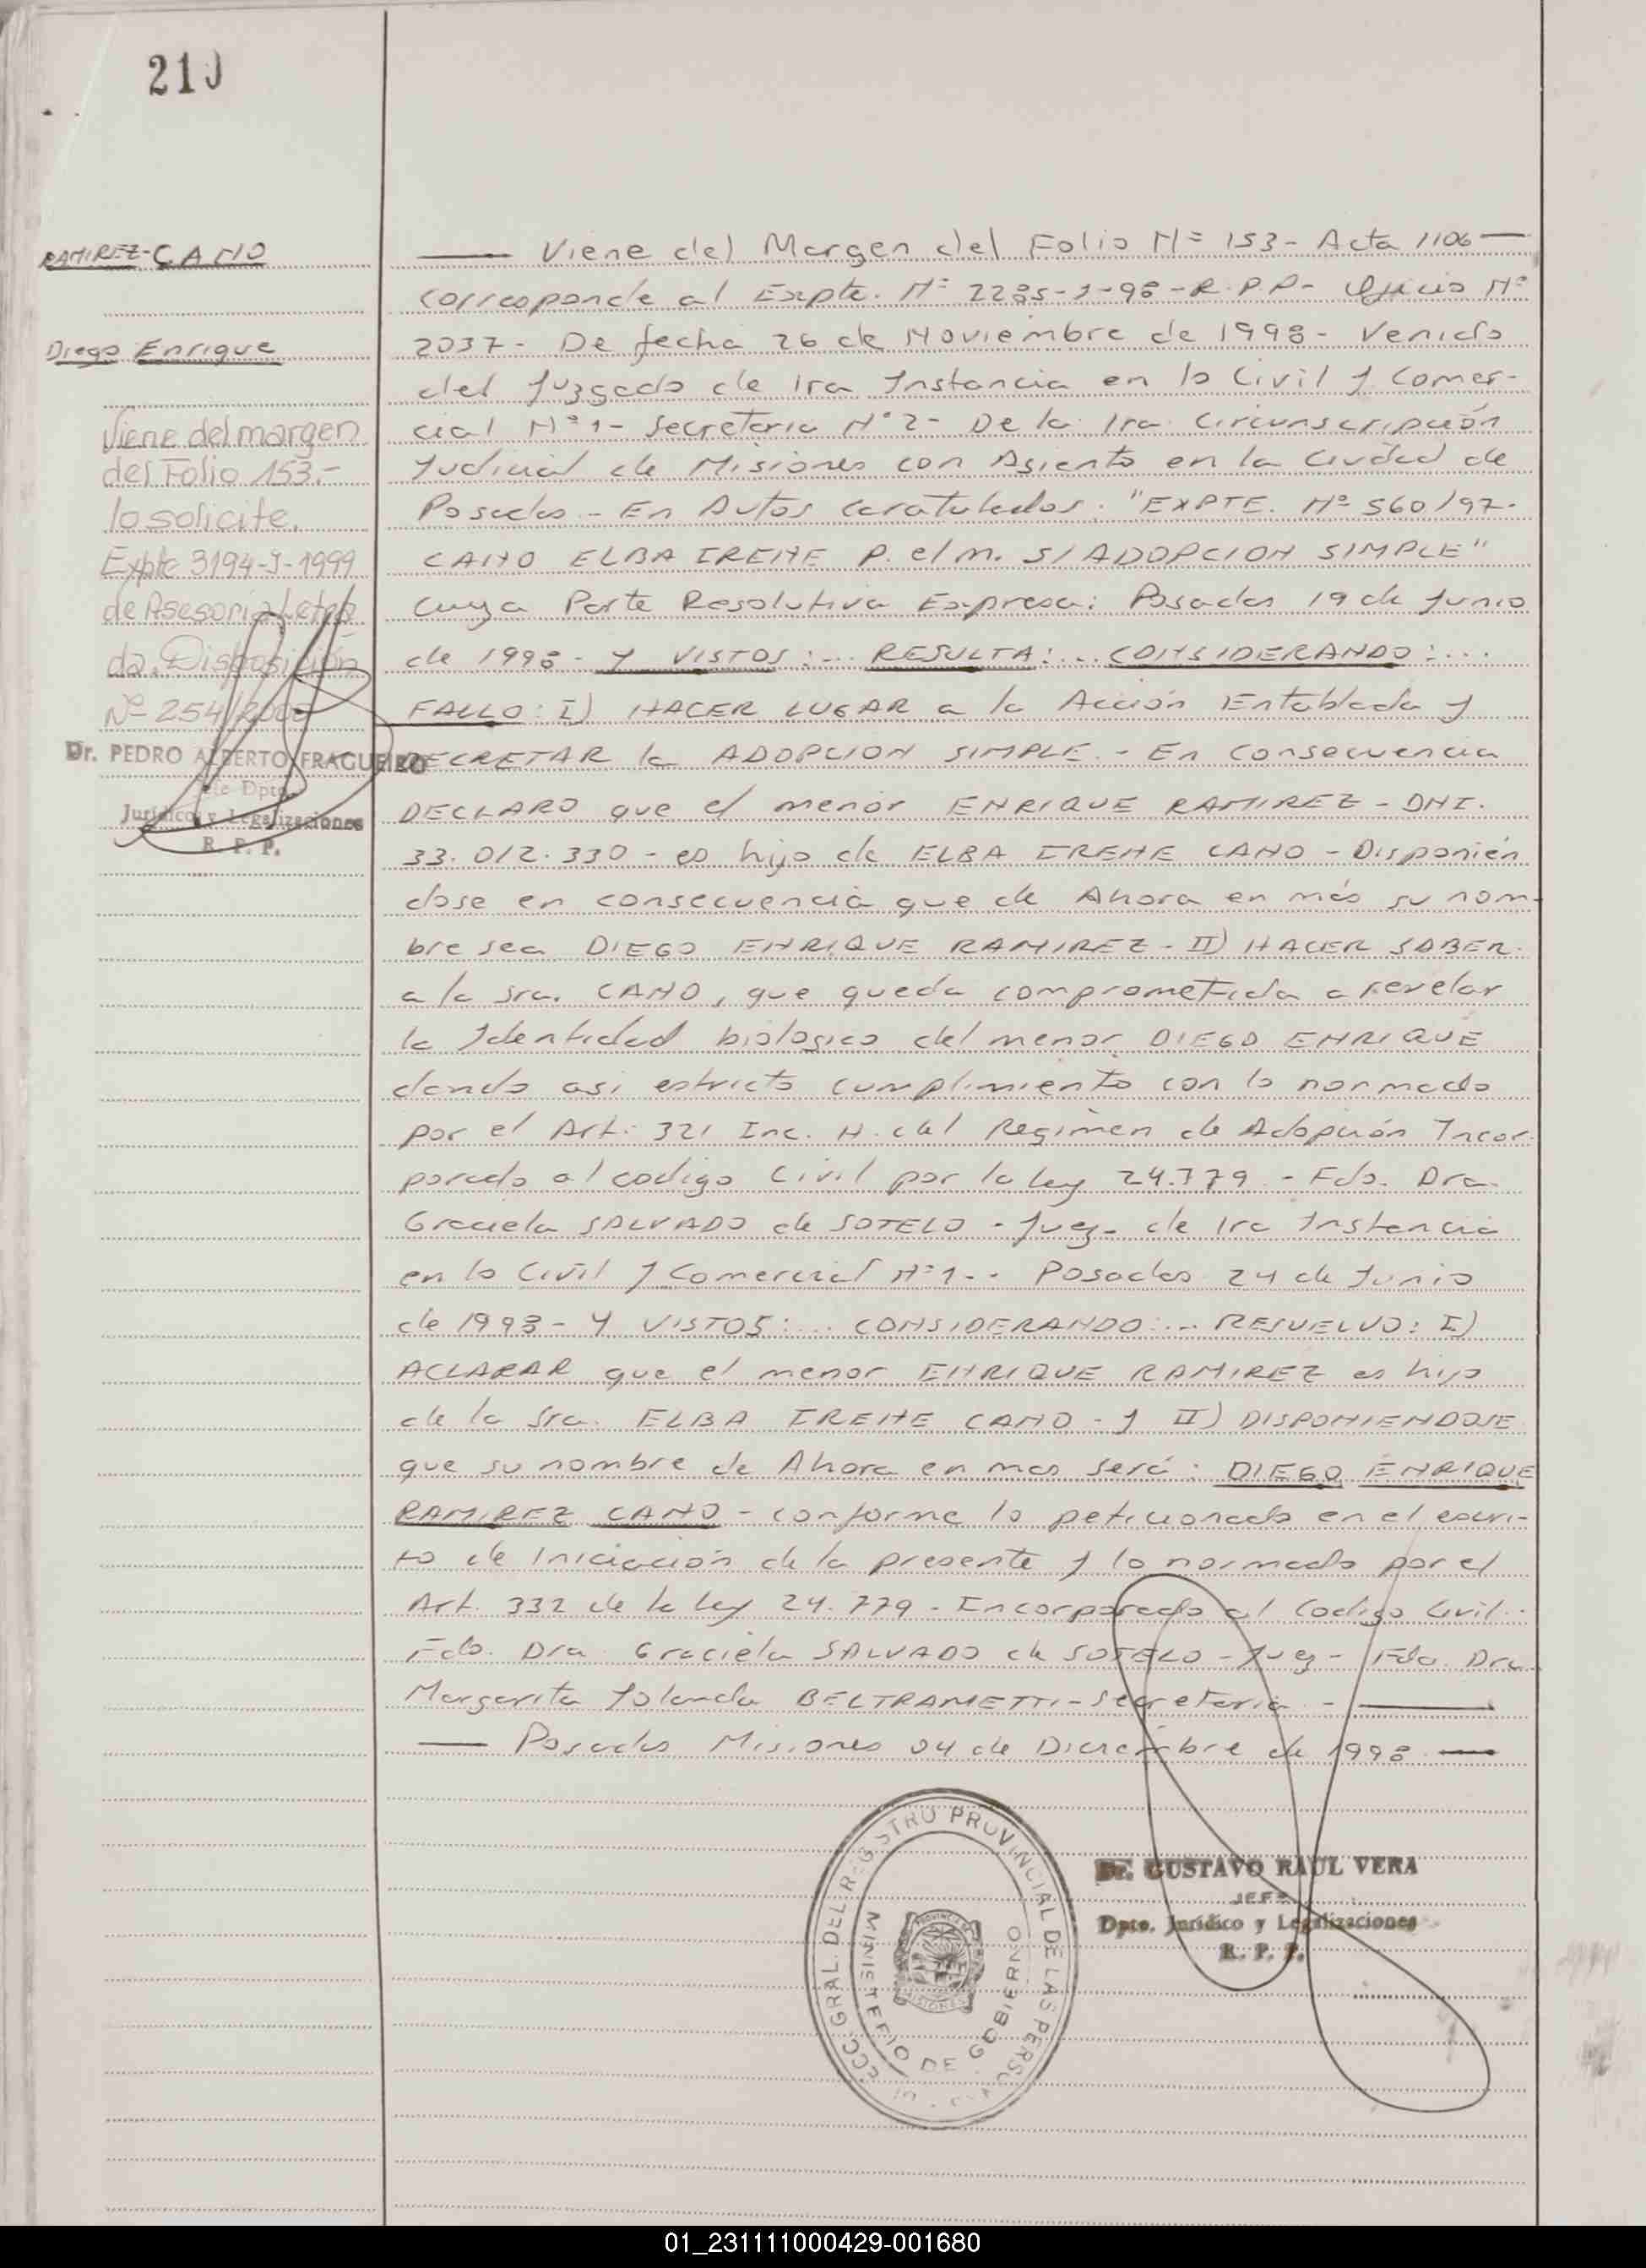 210
RAMIREZ-CANO
Diego Enrique
Viene del margen
del Folio 153.-
lo solicite.
Expte 3194-J-1999
de Asesoria Letra
da. Disposición
Nº 254/2000
Dr. PEDRO ALBERTO FRAGUEIRO
Jefe Dpto.
Jurídico y Legalizaciones
R. P. P.
Viene del Margen del Folio Nº 153- Acta 1106
corresponde al Expte. Nº 2285-J-98-R.P.P- Oficio Nº
2037- De fecha 26 de Noviembre de 1998- Venido
del Juzgado de 1ra Instancia en lo Civil y Comer-
cial Nº 1- Secretaria Nº 2- De la 1ra Circunscripción
Judicial de Misiones con Asiento en la Ciudad de
Posadas- En Autos caratulados: "EXPTE. Nº 560/97-
CANO ELBA IRENE P. el m. S/ADOPCION SIMPLE"
cuya Parte Resolutiva Expresa: Posadas 19 de Junio
de 1998- Y VISTOS:... RESULTA:... CONSIDERANDO:...
FALLO: I) HACER LUGAR a la Acción Entablada y
DECRETAR la ADOPCION SIMPLE.- En Consecuencia
DECLARO que el menor ENRIQUE RAMIREZ- DNI.
33.012.330- es hijo de ELBA IRENE CANO- Disponién
dose en consecuencia que de Ahora en más su nom-
bre sea DIEGO ENRIQUE RAMIREZ- II) HACER SABER
a la Sra. CANO, que queda comprometida a revelar
la Identidad biologica del menor DIEGO ENRIQUE
dando asi estricto cumplimiento con lo normado
por el Art. 321 Inc. H. del Regimen de Adopción Incor-
porado al codigo Civil por la Ley 24.779.- Fdo. Dra.
Graciela SALVADO de SOTELO- Juez- de 1ra Instancia
en lo Civil y Comercial Nº 1-. Posadas 24 de Junio
de 1998- Y VISTOS:... CONSIDERANDO:... RESUELVO: I)
ACLARAR que el menor ENRIQUE RAMIREZ es hijo
de la Sra. ELBA IRENE CANO- y II) DISPONIENDOSE
que su nombre de Ahora en mas será: DIEGO ENRIQUE
RAMIREZ CANO- conforme lo peticionado en el escri-
to de Iniciación de la presente y lo normado por el
Art. 332 de la Ley 24.779- Encorporado al Codigo Civil.
Fdo. Dra Graciela SALVADO de SOTELO- Juez- Fdo. Dra
Margarita Yolanda BELTRAMETTI- Secretaria.-
Posadas Misiones 04 de Diciembre de 1998
GRAL. DEL REGISTRO PROVINCIAL DE LAS PERSO
MINISTERIO DE GOBIERNO
PROVINCIA DE
MISIONES
Dr. GUSTAVO RAUL VERA
JEFE
Dpto. Jurídico y Legalizaciones
R. P. P.
01_231111000429-001680